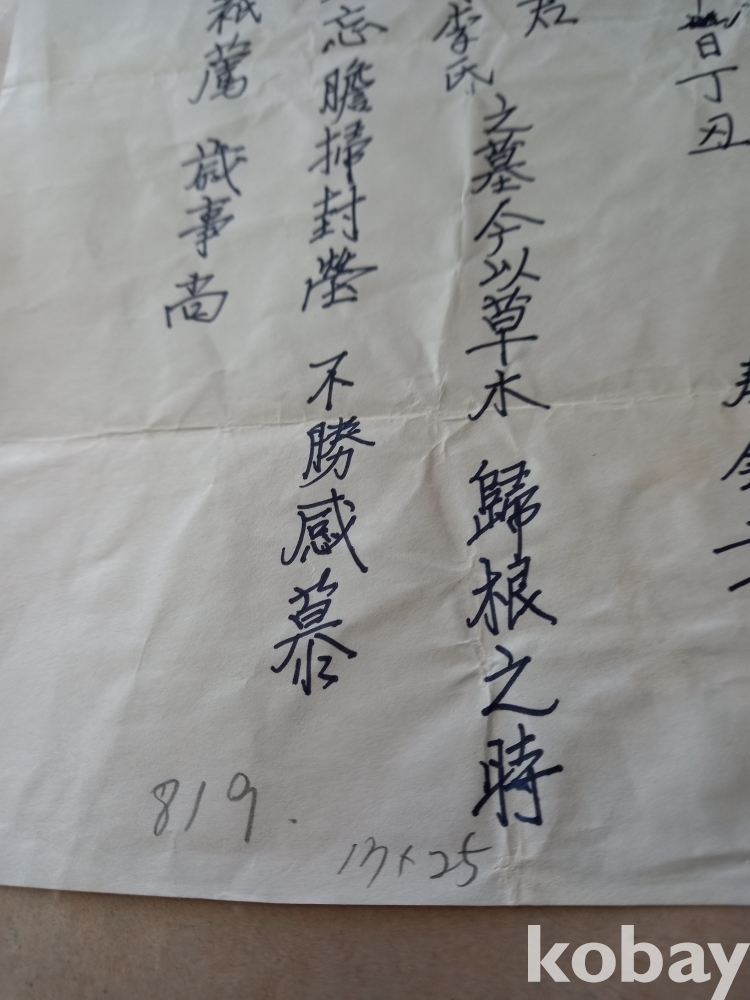 日丁丑
今
君
李氏
之墓今以草木 歸根之時
忘瞻掃封塋 不勝感慕
祇薦 歲事 尚
819.
13×25
kobay